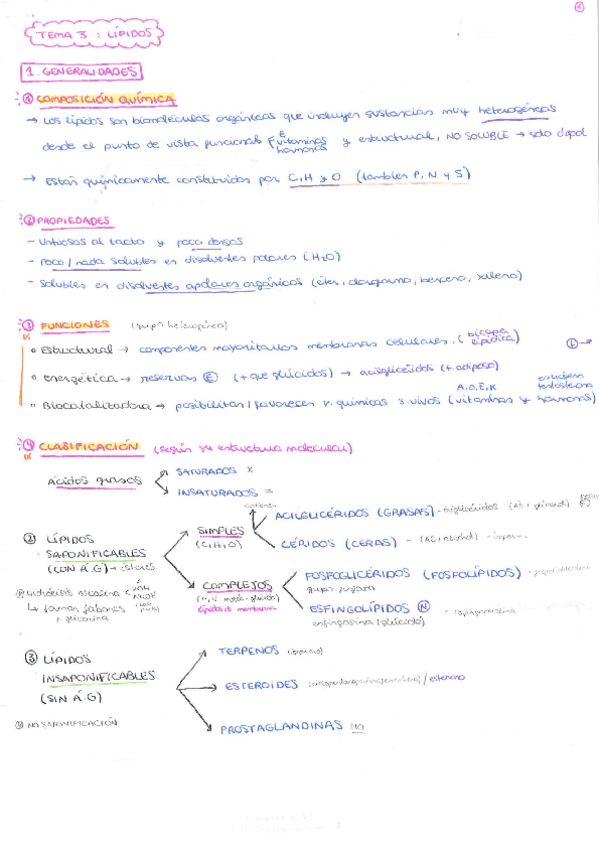 1
TEMA 3 : LÍPIDOS
1. GENERALIDADES
① COMPOSICIÓN QUÍMICA
→ Los lípidos son biomoléculas orgánicas que incluyen sustancias muy heterogéneas
desde el punto de vista funcional (E vitaminas hormonas y estructural, NO SOLUBLE → solo dapol
→ Están químicamente constituidos por C, H y O (también P, N y S)
② PROPIEDADES
- Untuosos al tacto y poco densos
- Poco / nada solubles en disolventes polares (H2O)
- Solubles en disolventes apolares orgánicos (éter, cloroformo, benceno, xileno)
③ FUNCIONES (super heterogénea)
Estructural → componentes mayoritarios membranas celulares. (bicapa lipídica)
Energética → reservas Ⓔ (+ que glúcidos) → acilglicéridos (+ adiposo)
A,D,E,K
testosterona
Biocatalizadora → posibilitan / favorecen r. químicas s. vivos (vitaminas y hormonas)
④ CLASIFICACIÓN (según su estructura molecular)
Ácidos grasos
SATURADOS
INSATURADOS =
② LÍPIDOS SAPONIFICABLES
(CON Á.G) → ésteres
SIMPLES
(C, H, O)
ACILGLICÉRIDOS (GRASAS) - triglicéridos
CÉRIDOS (CERAS) -
COMPLEJOS
Lípidos de membrana
FOSFOGLICÉRIDOS (FOSFOLÍPIDOS) -
grupo fosfato
ESFINGOLÍPIDOS Ⓝ
esfingosina
hidrólisis alcalina
NaOH
↳ forman jabones
y glicerina
③ LÍPIDOS
INSAPONIFICABLES
(SIN Á.G)
NO SAPONIFICACIÓN
TERPENOS (isopreno)
ESTEROIDES / esterano
PROSTAGLANDINAS NO